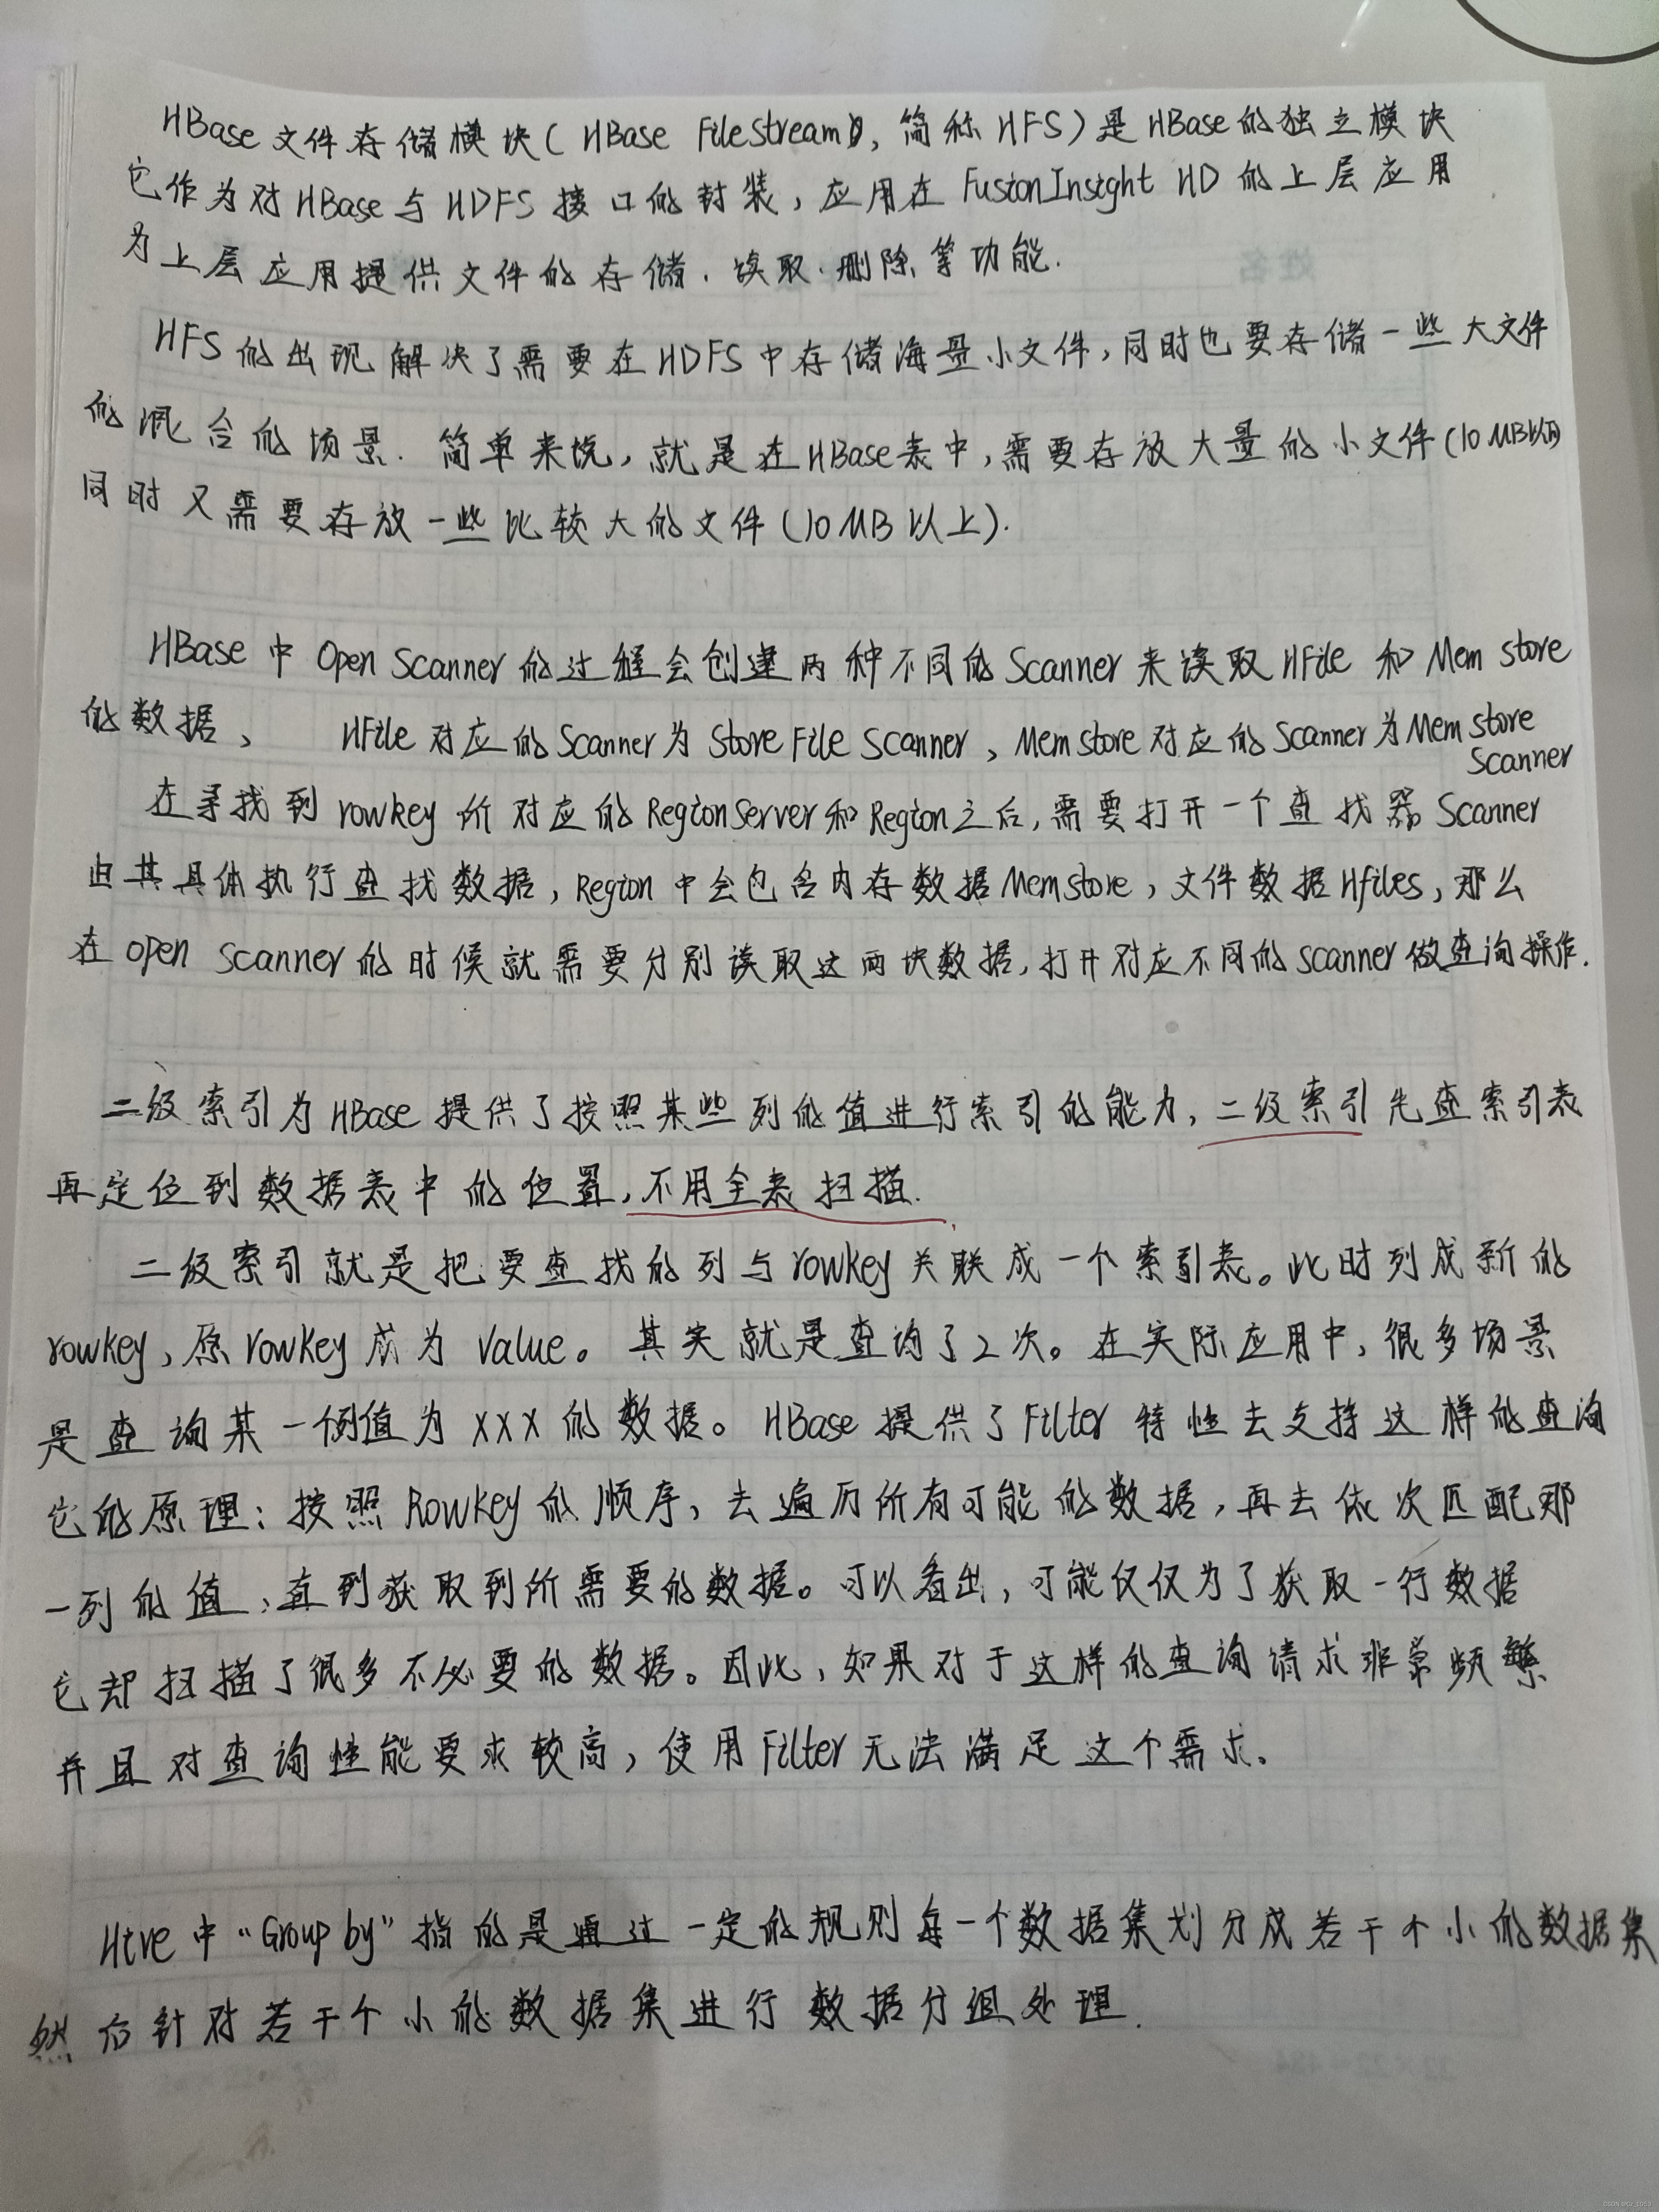 HBase文件存储模块(HBase FileStream,简称HFS)是HBase的独立模块
它作为对HBase与HDFS接口的封装,应用在FusionInsight HD的上层应用
为上层应用提供文件的存储、读取、删除等功能.
HFS的出现解决了需要在HDFS中存储海量小文件,同时也要存储一些大文件
的混合的场景.简单来说,就是在HBase表中,需要存放大量的小文件(10MB以下)
同时又需要存放一些比较大的文件(10MB以上).
HBase中Open Scanner的过程会创建两种不同的Scanner来读取HFile和Mem store
的数据、 HFile对应的Scanner为Store File Scanner、Mem store对应的Scanner为Mem store
Scanner
在寻找到rowkey所对应的RegionServer和Region之后,需要打开一个查找器Scanner
由其具体执行查找数据,Region中会包含内存数据Memstore,文件数据Hfiles,那么
在open scanner的时候就需要分别读取这两块数据,打开对应不同的scanner做查询操作.
二级索引为HBase提供了按照某些列的值进行索引的能力,二级索引先查索引表
再定位到数据表中的位置,不用全表扫描.
二级索引就是把要查找的列与rowkey关联成一个索引表。此时列成新的
rowkey,原rowkey成为value。其实就是查询了2次。在实际应用中,很多场景
是查询某一例值为XXX的数据。HBase提供了Filter特性去支持这样的查询
它的原理:按照Rowkey的顺序,去遍历所有可能的数据,再去依次匹配那
一列的值,直到获取到所需要的数据。可以看出,可能仅仅为了获取一行数据
它却扫描了很多不必要的数据。因此,如果对于这样的查询请求非常频繁
并且对查询性能要求较高,使用Filter无法满足这个需求。
Hive中"Group by"指的是通过一定的规则每一个数据集划分成若干个小的数据集
然后针对若干个小的数据集进行数据分组处理.